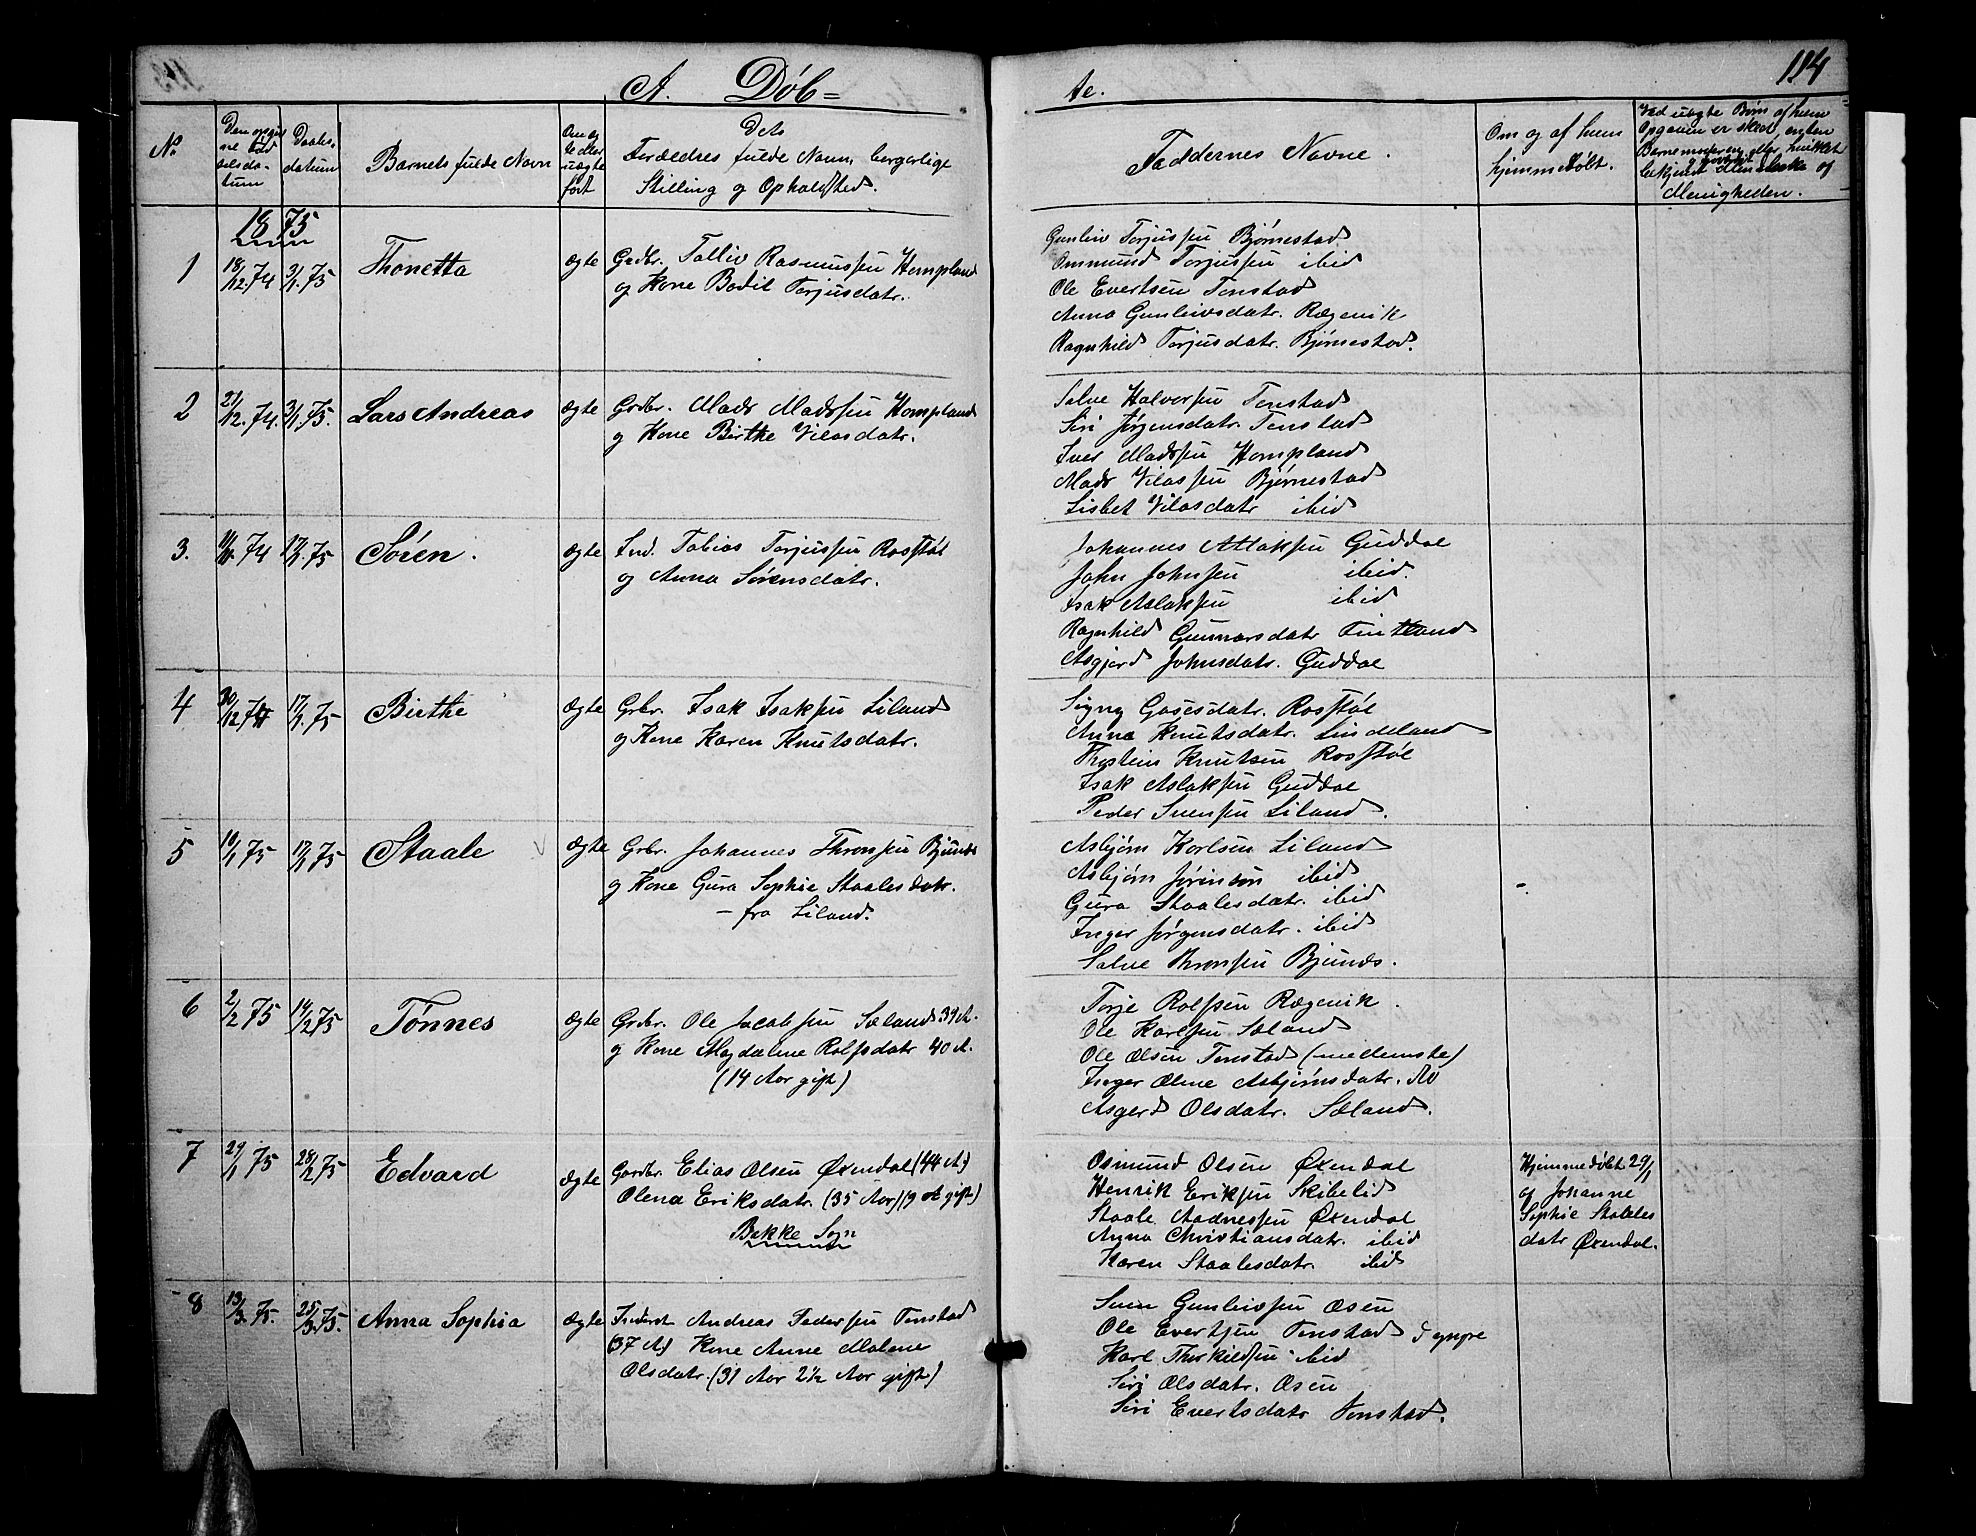 A. Døb=
te.
114
No
Den opgiv
ne Fød
selsda-
tum
Daabs-
datum
Barnets fulde Navn
Om æg
te eller
uægte
født
Dets
Forældres fulde Navn, borgerlige
Stilling og Opholdsted.
Faddernes Navne.
Om og af hvem
hjemmedøbt.
Ved uægte Børn af hvem
Opgaven er skeet, enten
Barnemoderen eller hvilket
bekjendt Menneske af
Menigheden.
1875
1
18/12. 74
3/1. 75
Thonetta
ægte
Grdbr. Tolliv Rasmussen Hompland
og Kone Bodil Torjusdatr.
Gunleiv Torjussen Bjørnestad
Ommund Torjussen ibid
Ole Evertsen Tonstad
Anna Gunleivsdatr. Rægevik
Ragnhild Torjusdatr. Bjørnestad.
2
21/12. 74.
3/1. 75.
Lars Andreas
ægte
Grdbr. Mads Madssen Hompland
og Kone Birthe Vilasdatr.
Salve Halvorsen Tonstad
Siri Jørgensdatr. Tonstad
Iver Madssen Hompland
Mads Vilassen Bjørnestad
Lisbet Vilasdatr ibid
3.
74
17/1. 75
Sören.
ægte
Ind. Tobias Torjussen Rosstøl
og Anna Sørensdatr.
Johannes Atlaksen Guddal
John Johnsen ibid.
Isak Aslaksen ibid
Ragnhild Gunnarsdatr Fintland
Asgjerd Johnsdatr. Guddal
4
30/12 74
17/1. 75
Birthe
ægte
Grbr. Isak Isaksen Liland
og Kone Karen Knutsdatr.
Signy Gasesdatr. Rosstøl
Anna Knutsdatr. Lindeland
Thostein Knutsen Rosstøl
Isak Aslaksen Guddal
Peder Svensen Liland.
5
10/1 75
17/1 75
Staale
ægte
Grbr. Johannes Thronsen Bjunds
og Kone Gura Sophie Staalesdatr.
- fra Liland.
Asbjørn Karlsen Liland
Asbjørn Jørinson ibid
Gura Staalesdatr. ibid
Inger Jørgensdatr. ibid
Salve Thronsen Bjunds.
6
2/2 75
14/2 75
Tönnes
ægte
Grdbr. Ole Jacobsen Sæland 39 A.
og Kone Magdalene Rolfsdatr 40 A.
(14 Aar gift)
Torje Rolfsen Rægevik.
Ole Karlsen Sæland
Ole Olsen Tonstad (medemste)
Inger Oline Asbjørnsdatr. Av
Asgerd Olsdatr. Sæland.
7
29/1 75
28/2 75
Edvard
ægte
Gardbr. Elias Olsen Øxendal (44 A.)
Olena Eriksdatr. (35 Aar) (9 A gift)
Bakke Sogn
Osmund Olsen Øxendal
Henrik Eriksen Skibelid
Staale Aadnessen Øxendal
Anna Christiansdatr. ibid
Karen Staalesdatr. ibid
Hjemmedøbt 29/1
af Johanne
Sophie Staales
datr Øxendal.
8
13/3. 75.
25/3. 75.
Anna Sophia
ægte
Inderst Andreas Pedersen Tonstad
(37 A) Kone Anne Malene
Olsdatr. (31 Aar 2½ Aar gift)
Sven Gunleivsen Osen
Ole Evertsen Tonstad d yngre
Karl Thorkildsen ibid
Siri Olsdatr. Osen
Siri Evertsdatr Tonstad.